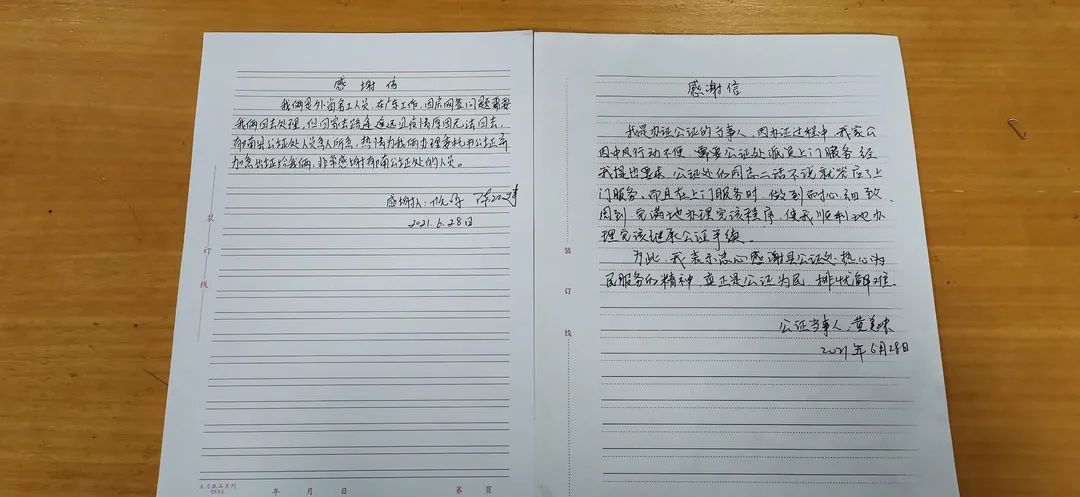 感谢信
我俩是外省务工人员,在广东工作,因房网签问题需要
我俩回去处理,但回家去路途遥远且疫情原因无法回去,
南县公证处人员急人所急,热情为我俩办理委托书公证并
加急出证给我俩,非常感谢南公证处的人员。
感谢人:
2021.6.28日
装
订
线
年 月 日
第 页
感谢信
我是办证公证的当事人,因办证过程中,我家公
因中风行动不便,需要公证处派员上门服务,经
我提出要求,公证处的同志二话不说就答应了上
门服务,而且在上门服务时,做到耐心、细致
周到,完满地办理完该程序,使我顺利地办
理完该继承公证手续。
为此,我表示忠心感谢县公证处热心为
民服务的精神,真正是公证为民,排忧解难。
公证当事人:黄
2021年6月28日
装
订
线